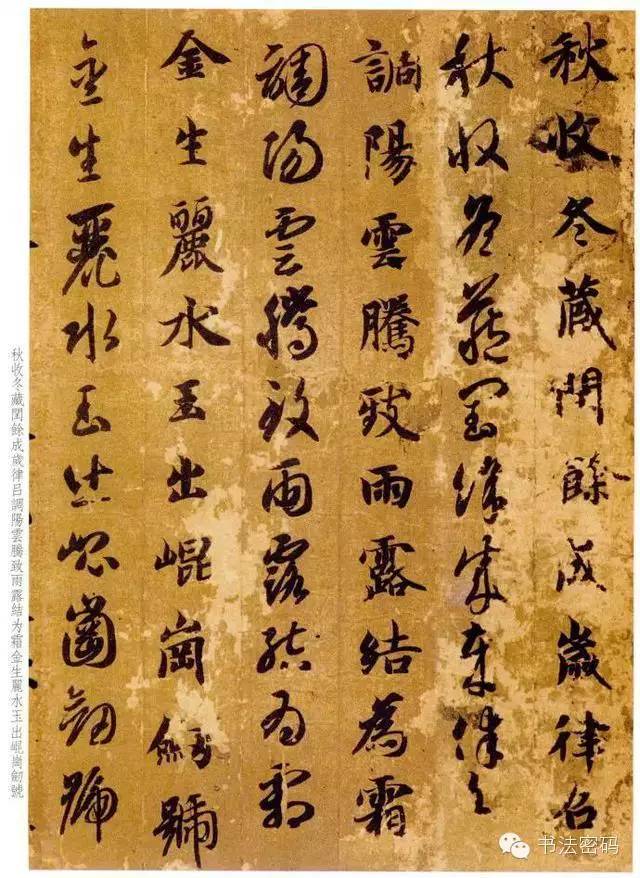 秋收冬藏閏餘成歲律呂
秋收冬藏閏餘成歲律呂
調陽雲騰致雨露結為霜
調陽雲騰致雨露結為霜
金生麗水玉出崐崗劒號
金生麗水玉出崐崗劒號
秋收冬藏閏餘成歲律呂調陽雲騰致雨露結为霜金生麗水玉出崐崗劒號
书法密码